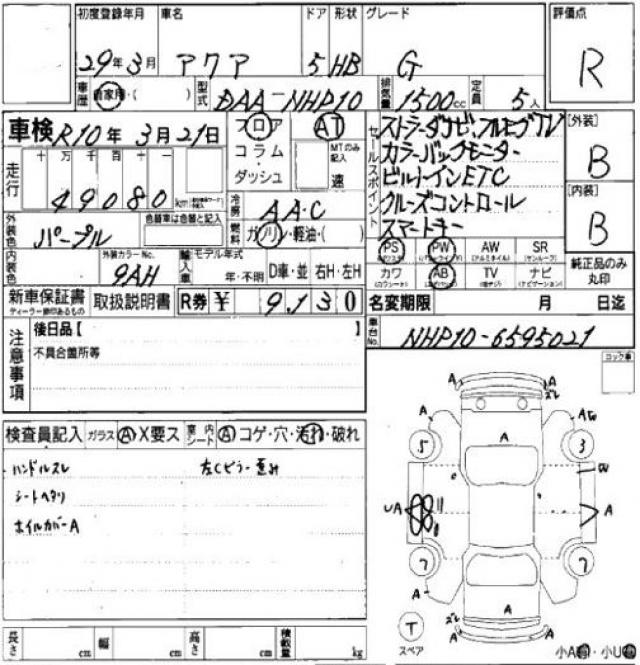 初度登録年月 車名 ドア 形状 グレード 評価点
29年3月 アクア 5 HB G R
車歴 自家用・( ) 型式 DAA-NHP10 排気量 1500cc 定員 5人
車検 R10年3月21日 フロア AT
コラム MTのみ記入
ダッシュ 速
走行 十万千百十一
49080km
冷房 AAC
外装色 パープル 色替車は色替と記入 燃料 ガソリン・軽油・( )
内装色 外装カラーNo. 9AH 輸入車 モデル年式 年・不明 D車・並 右H・左H
セールスポイント
ストラーダナビ、フルセグTV
カラーバックモニター
ビルトインETC
クルーズコントロール
スマートキー
[外装] B
[内装] B
PS PW AW SR
(パワステ) (パワーウインド) (アルミホイル) (サンルーフ)
カワ AB TV ナビ
(カワシート) (エアバッグ) (ナビゲーション)
純正品のみ丸印
新車保証書 取扱説明書 R券 ¥ 9,130
ディーラー捺印あるもの
名変期限 月 日迄
車台No. NHP10-6595021
注意事項
後日品【
不具合箇所等
コック車
検査員記入 ガラス A X要ス 室内シート A コゲ・穴・汚れ・破れ
ハンドルスレ 左Cピラー歪み
シートヘタリ
ホイルカバーA
A A
A A A W
5 3
W
UA A
7 7
A A A
T
スペア
A A
小A有・小U有
長さ cm 幅 cm 高さ cm 積載量 kg